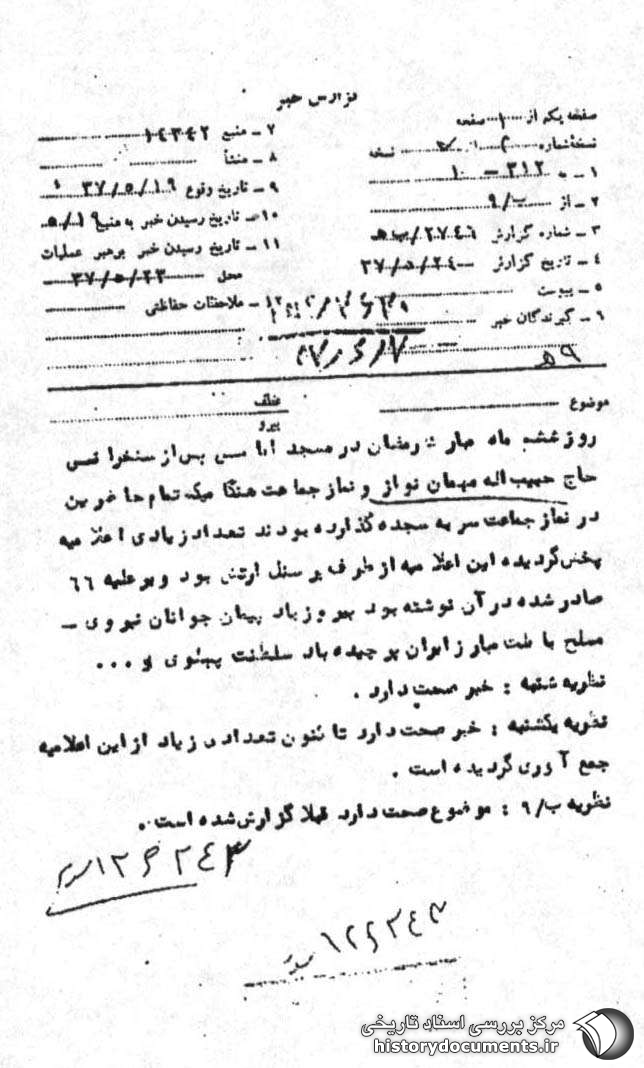 گزارش خبر
صفحه یکم از ۱ صفحه
نسخه شماره ۲ از نسخه
۱ - به ۳۱۲ - ۱۰
۲ - از ۹/ب
۳ - شماره گزارش ۲۷۴۶/ب ه
۴ - تاریخ گزارش ۳۷/۵/۲۴
۵ - پیوست
۶ - گیرندگان خبر
۷ - منبع ۱۴۳۴۲
۸ - منشأ
۹ - تاریخ وقوع ۳۷/۵/۱۹
۱۰ - تاریخ رسیدن خبر به منبع ۵/۱۹
۱۱ - تاریخ رسیدن خبر برهبر عملیات
محل ۳۷/۵/۲۳
۱۲ - ملاحظات حفاظتی
۵۹
موضوع
عطف
پیرو
روز ششم ماه مبارک رمضان در مسجد پس از سخنرانی
حاج حبیب اله مهمان نواز و نماز جماعت هنگامیکه تمام حاضرین
در نماز جماعت سر به سجده گذارده بودند تعداد زیادی اعلامیه
پخش گردیده این اعلامیه از طرف پرسنل ارتش بود و بر علیه ۶۶
صادر شده در آن نوشته بود پیروز باد پیمان جوانان نیروی -
مسلح با ملت مبارز ایران برچیده باد سلطنت پهلوی و ...
نظریه شنبه : خبر صحت دارد .
نظریه یکشنبه : خبر صحت دارد تا کنون تعدادی زیاد از این اعلامیه
جمع آوری گردیده است .
نظریه ۹/ب : موضوع صحت دارد قبلا گزارش شده است .
مرکز بررسی اسناد تاریخی
historydocuments.ir